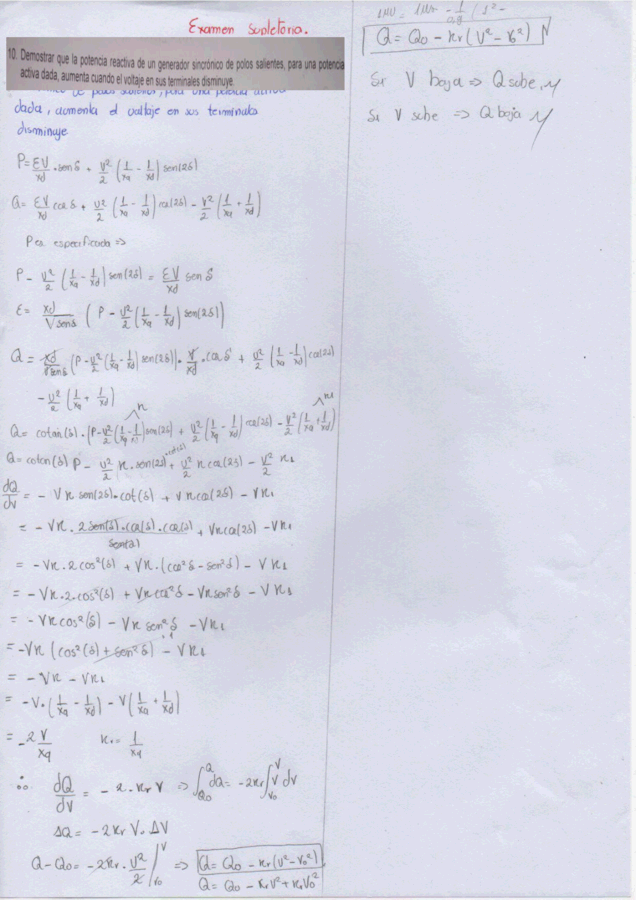 Examen Supletorio.
10. Demostrar que la potencia reactiva de un generador sincrónico de polos salientes, para una potencia
activa dada, aumenta cuando el voltaje en sus terminales disminuye.
dada, aumenta el voltaje en sus terminales
disminuye
P = EV/xd · sen δ + V²/2 (1/xq - 1/xd) sen(2δ)
Q = EV/xd cos δ + V²/2 (1/xq - 1/xd) cos(2δ) - V²/2 (1/xq + 1/xd)
P es especificada =>
P - V²/2 (1/xq - 1/xd) sen(2δ) = EV/xd sen δ
E = xd/(V sen δ) (P - V²/2 (1/xq - 1/xd) sen(2δ))
Q = xd/(V sen δ) (P - V²/2 (1/xq - 1/xd) sen(2δ)) · V/xd · cos δ + V²/2 (1/xq - 1/xd) cos(2δ)
- V²/2 (1/xq + 1/xd)
Q = cotan(δ) · (P - V²/2 (1/xq - 1/xd) sen(2δ)) + V²/2 (1/xq - 1/xd) cos(2δ) - V²/2 (1/xq + 1/xd)
Q = cotan(δ) P - V²/2 K · sen(2δ) · cot(δ) + V²/2 K cos(2δ) - V²/2 K1
dQ/dV = - V K sen(2δ) · cot(δ) + V K cos(2δ) - V K1
= - V K · 2 sen(δ) · cos(δ) · cos(δ)/sen(δ) + V K cos(2δ) - V K1
= - V K · 2 cos²(δ) + V K · (cos² δ - sen² δ) - V K1
= - V K · 2 · cos²(δ) + V K cos² δ - V K sen² δ - V K1
= - V K cos²(δ) - V K sen² δ - V K1
= - V K (cos²(δ) + sen² δ) - V K1
= - V K - V K1
= - V · (1/xq - 1/xd) - V (1/xq + 1/xd)
= -2 V/xq Kr = 1/xq
∴ dQ/dV = - 2 · Kr V => ∫Q0^Q dQ = -2Kr ∫V0^V V dV
ΔQ = - 2Kr V · ΔV
Q - Q0 = - 2Kr · V²/2 |V0^V => Q = Q0 - Kr (V² - V0²)
Q = Q0 - Kr V² + Kr V0²
Q = Q0 - Kr (V² - V0²)
Si V baja => Q sube
Si V sube => Q baja